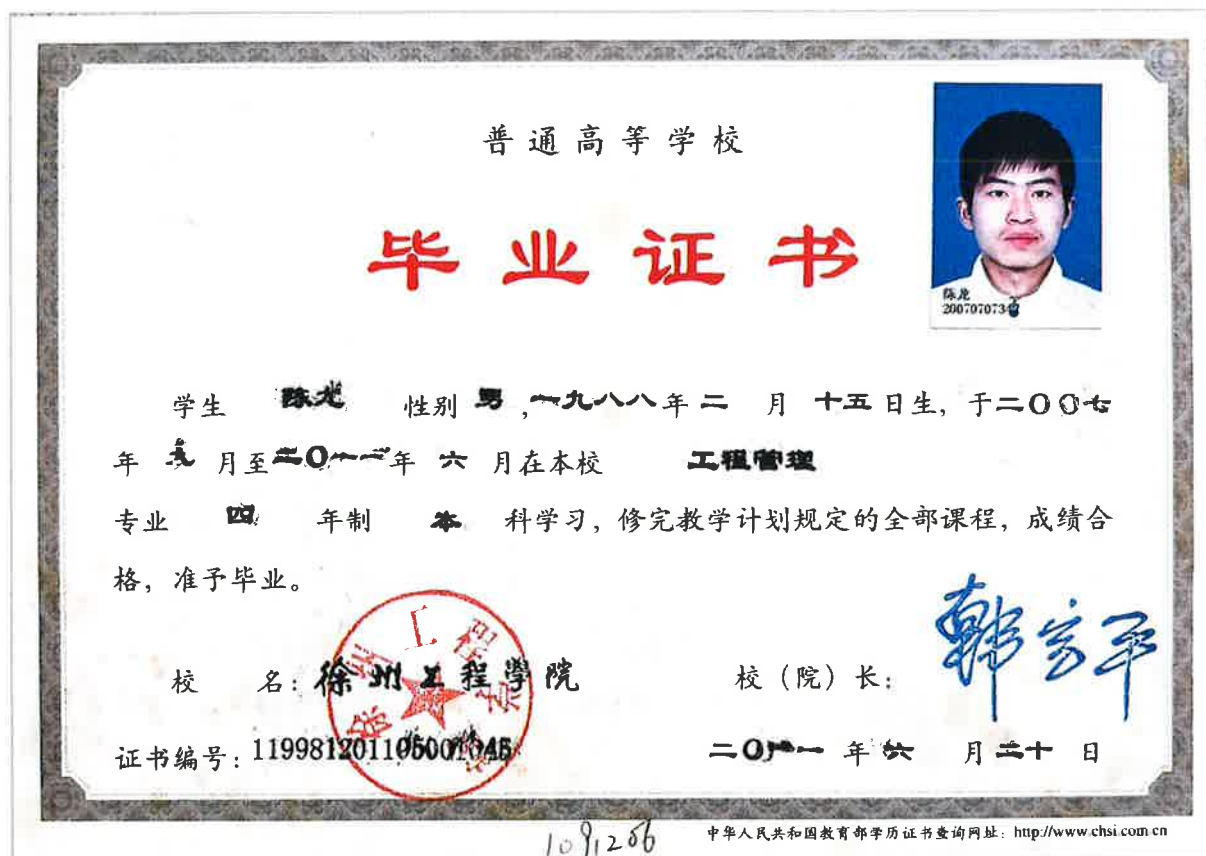 普通高等学校
毕业证书
陈龙
200707073
学生 陈龙 性别 男,一九八八年二月十五日生,于二〇〇七
年九月至二〇一一年六月在本校 工程管理
专业 四 年制 本 科学习,修完教学计划规定的全部课程,成绩合
格,准予毕业。
徐州工程学院
校 名:徐州工程學院 校(院)长:韩宝平
证书编号:119981201105001045
二〇一一年六月二十日
1091256
中华人民共和国教育部学历证书查询网址:http://www.chsi.com.cn